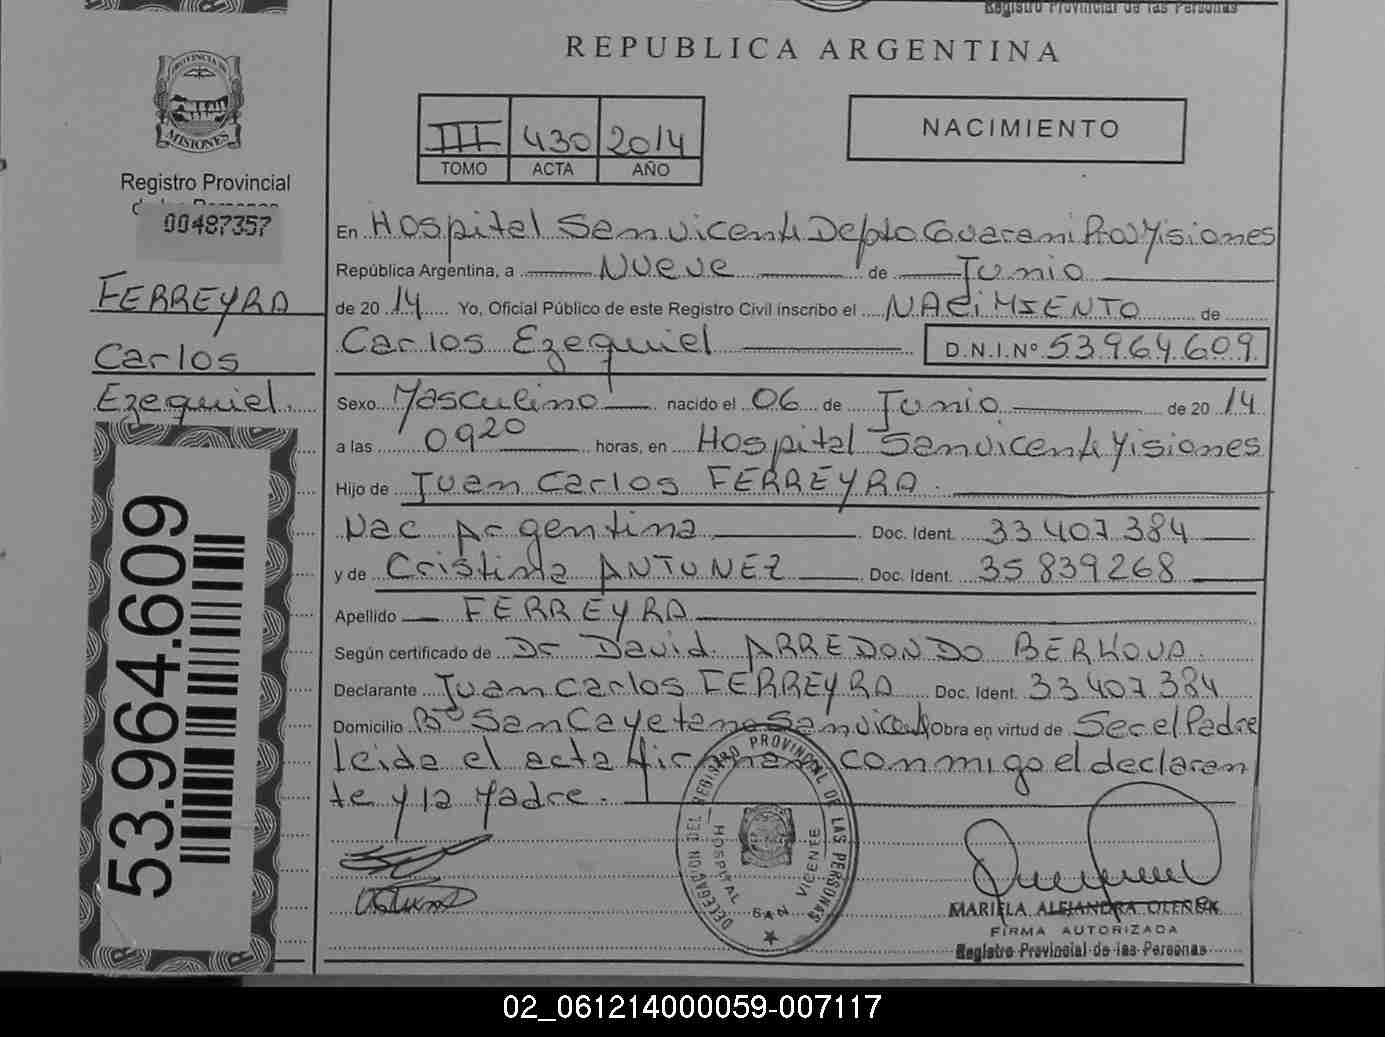 Registro Provincial de las Personas
REPUBLICA ARGENTINA
PROVINCIA DE
MISIONES
Registro Provincial
de las Personas
00487357
FERREYRA
Carlos
Ezequiel.
53.964.609
III 430 2014
TOMO ACTA AÑO
NACIMIENTO
En Hospital San vicente Depto Guarani Prov Misiones
República Argentina, a Nueve de Junio
de 2014 Yo, Oficial Público de este Registro Civil inscribo el NACiMIENTO de
Carlos Ezequiel D.N.I.Nº 53.964.609
Sexo Masculino nacido el 06 de Junio de 2014
a las 0920 horas, en Hospital San vicente Misiones
Hijo de Juan Carlos FERREYRA.
Nac Argentina Doc. Ident. 33 407 384
y de Cristina ANTUNEZ Doc. Ident. 35 839268
Apellido FERREYRA
Según certificado de Dr David. ARREDONDO
Declarante Juan Carlos FERREYRA Doc. Ident. 33 407 384
Domicilio Bº San Cayetano San vicente Obra en virtud de Ser el Padre
leida el acta firman conmigo el declaran
te y la Madre.
DELEGACION DEL REGISTRO PROVINCIAL DE LAS PERSONAS
HOSPITAL SAN VICENTE
MARIELA ALEJANDRA
FIRMA AUTORIZADA
Registro Provincial de las Personas
02_061214000059-007117